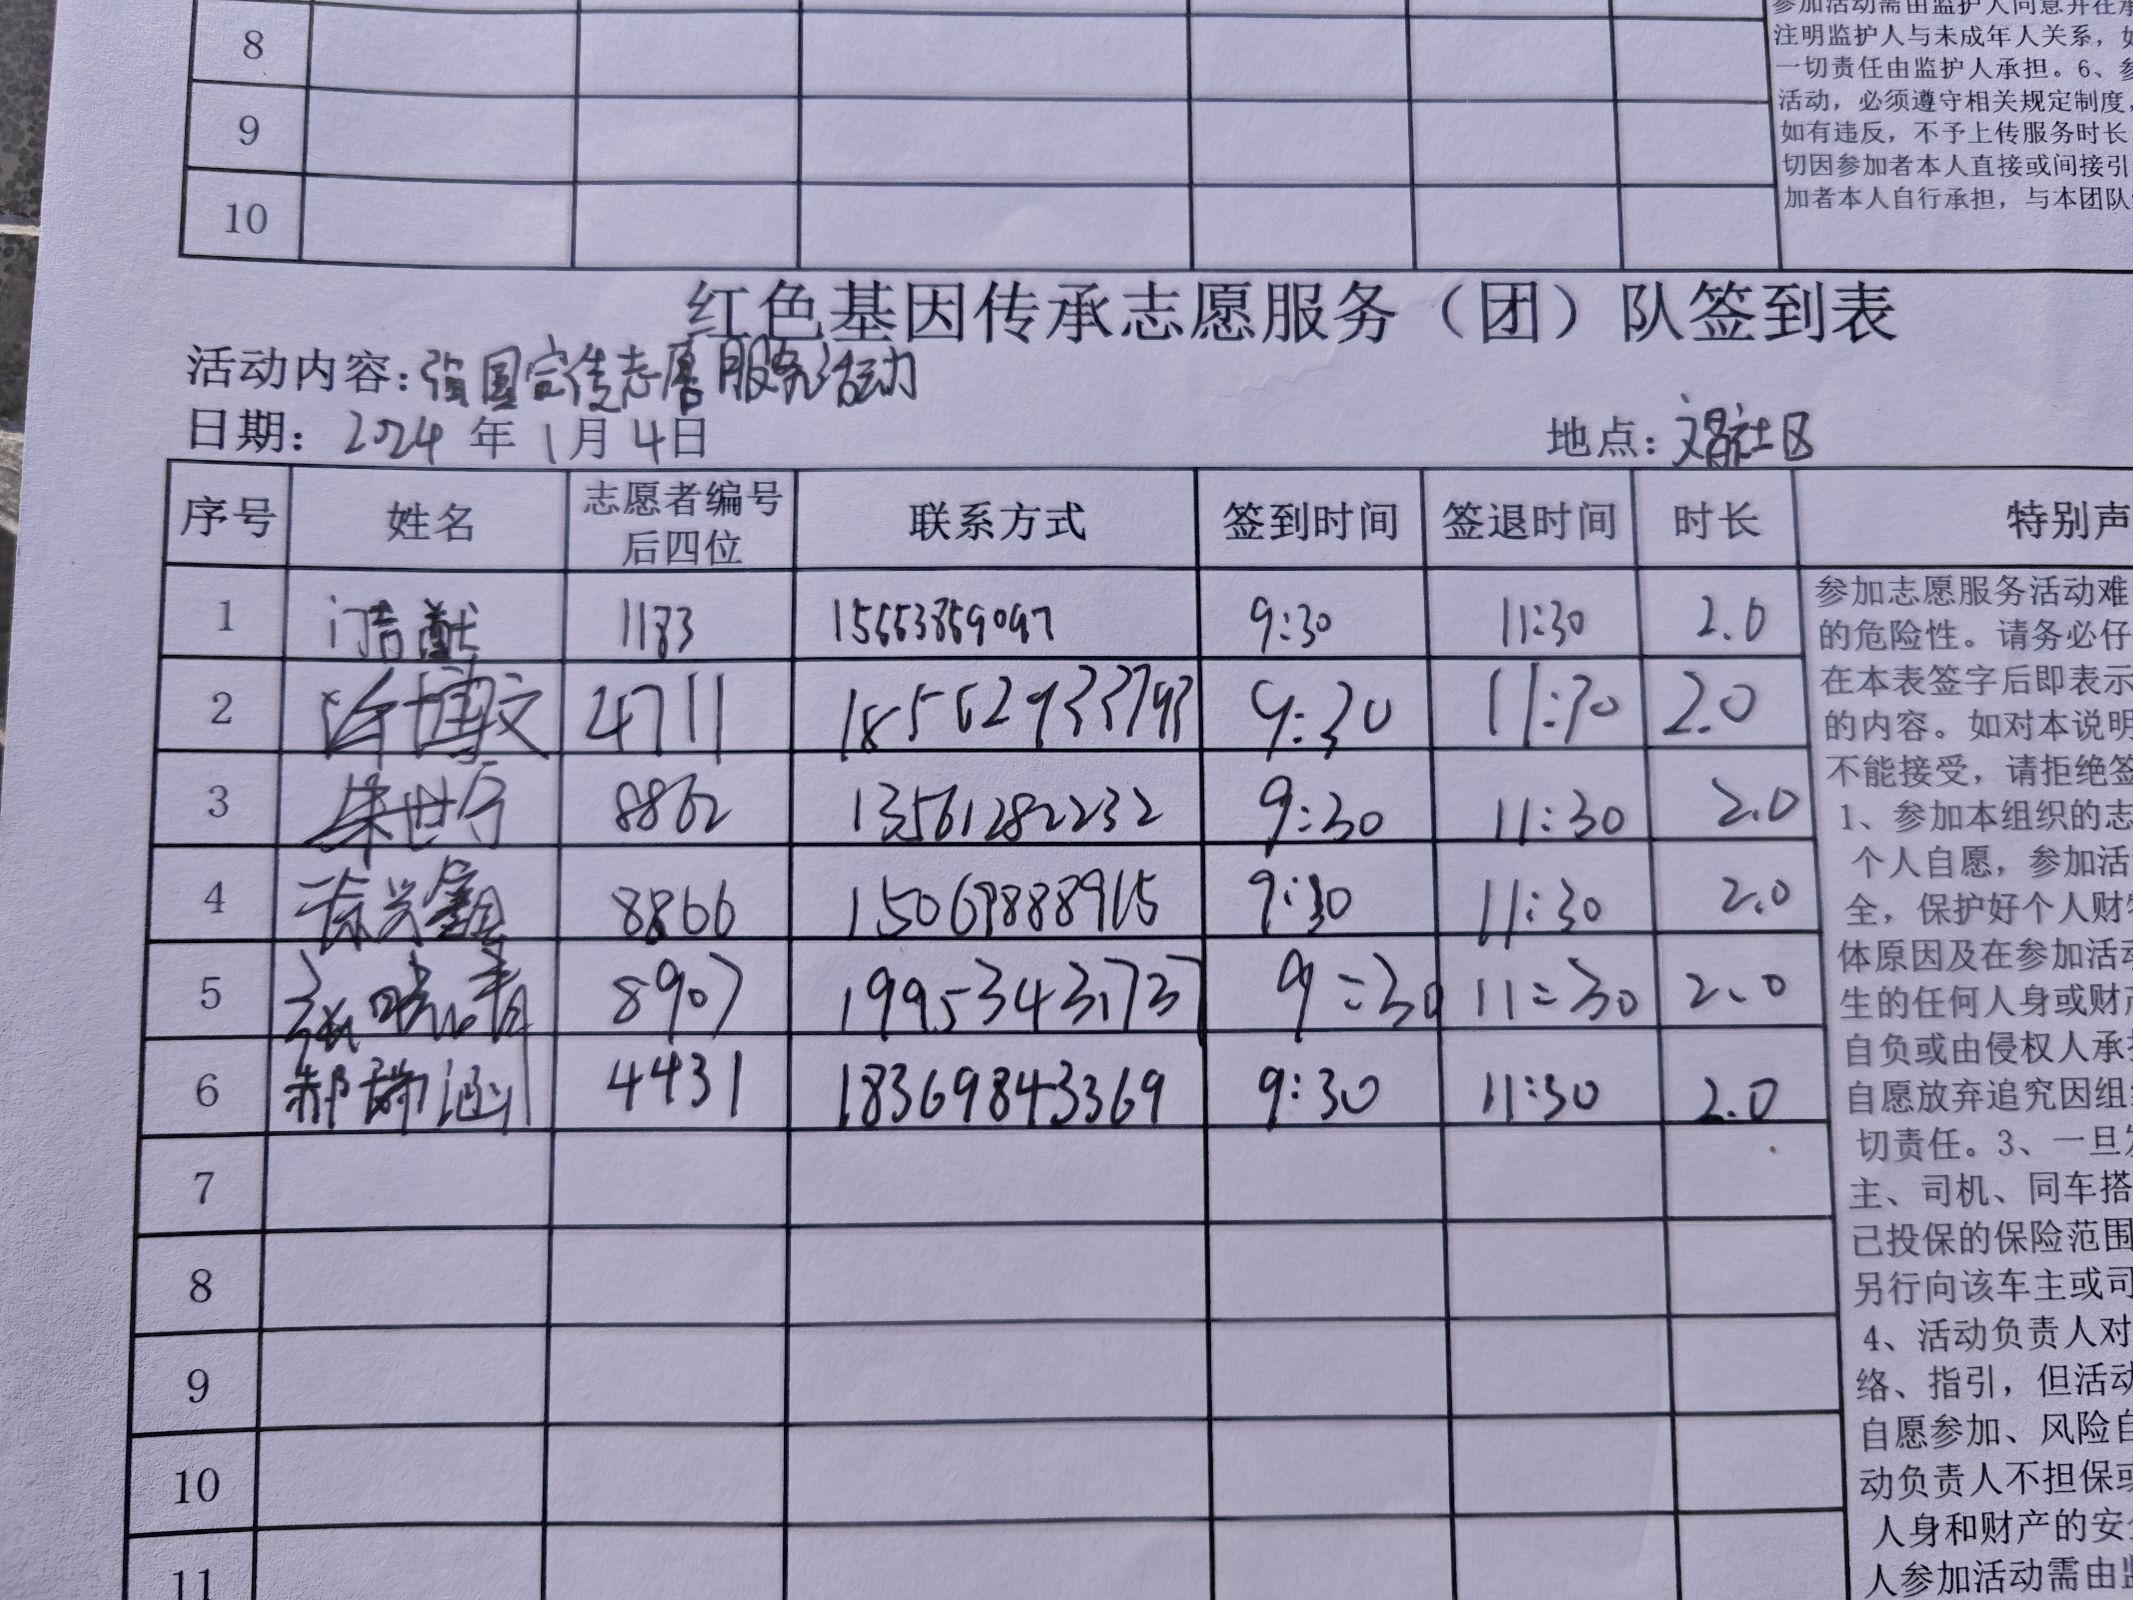 参加活动需由监护人同意并在承
8 注明监护人与未成年人关系，如
一切责任由监护人承担。6、参
9 活动，必须遵守相关规定制度，
如有违反，不予上传服务时长
切因参加者本人直接或间接引
10 加者本人自行承担，与本团队
红色基因传承志愿服务（团）队签到表
活动内容：强国宣传志愿服务活动
日期：2024年1月4日 地点：文昌社区
序号 姓名 志愿者编号后四位 联系方式 签到时间 签退时间 时长 特别声
1 1183 15663869097 9:30 11:30 2.0
2 徐博文 4711 9:30 11:30 2.0
3 朱世宁 8862 13561282232 9:30 11:30 2.0
4 8866 15069888915 9:30 11:30 2.0
5 8907 19953431737 9:30 11:30 2.0
6 郝瑞涵 4431 18369843369 9:30 11:30 2.0
7
8
9
10
11
参加志愿服务活动难
的危险性。请务必仔
在本表签字后即表示
的内容。如对本说明
不能接受，请拒绝签
1、参加本组织的志
个人自愿，参加活
全，保护好个人财物
体原因及在参加活动
生的任何人身或财产
自负或由侵权人承担
自愿放弃追究因组织
切责任。3、一旦发
主、司机、同车搭
已投保的保险范围
另行向该车主或司
4、活动负责人对
络、指引，但活动
自愿参加、风险自
动负责人不担保或
人身和财产的安全
人参加活动需由监